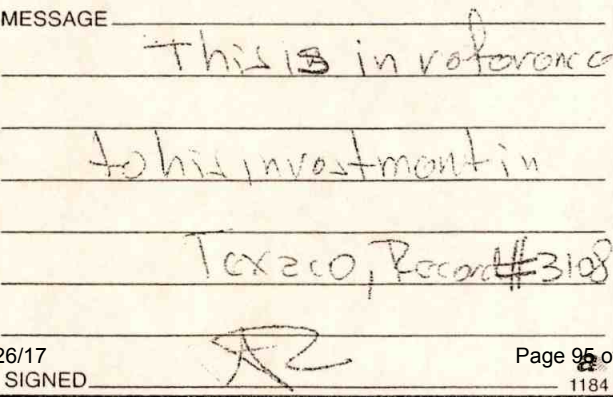 MESSAGE
This is in reference
to his investment in
Texaco, Record #3108
26/17
Page 95 o
SIGNED
1184